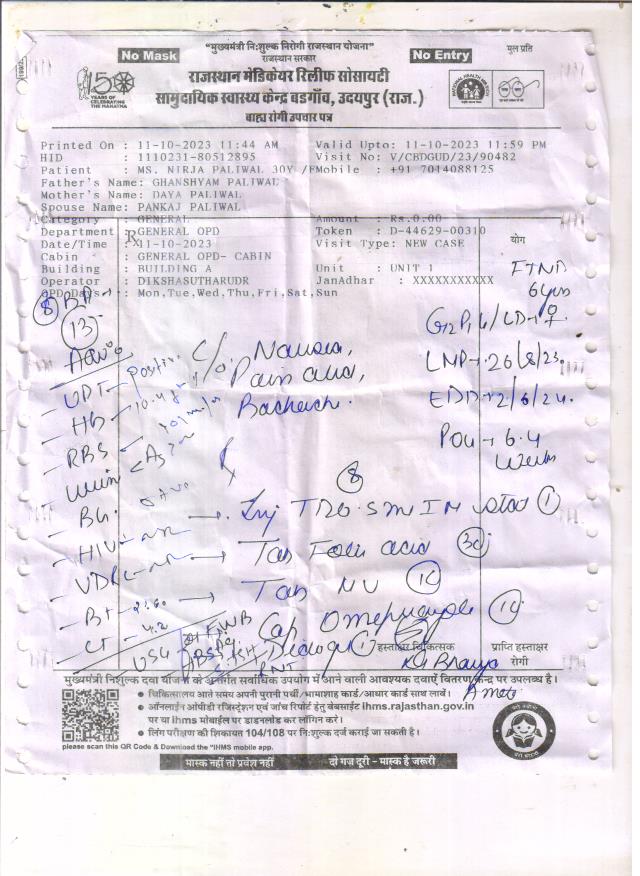 "मुख्यमंत्री नि:शुल्क निरोगी राजस्थान योजना"
मूल प्रति
No Mask
राजस्थान सरकार
No Entry
राजस्थान मेडिकेयर रिलीफ सोसायटी
सामुदायिक स्वास्थ्य केन्द्र बडगाँव, उदयपुर (राज.)
बाह्य रोगी उपचार पत्र
150
YEARS OF
CELEBRATING
THE MAHATMA
Printed On : 11-10-2023 11:44 AM Valid Upto: 11-10-2023 11:59 PM
HID : 1110231-80512895 Visit No: V/CBDGUD/23/90482
Patient : MS. NIRJA PALIWAL 30Y /FMobile : +91 7014088125
Father's Name: GHANSHYAM PALIWAL
Mother's Name: DAYA PALIWAL
Spouse Name: PANKAJ PALIWAL
Category : GENERAL Amount : Rs.0.00
Department : GENERAL OPD Token : D-44629-00310
Rx
Date/Time : 11-10-2023 Visit Type: NEW CASE
योग
Cabin : GENERAL OPD- CABIN
Building : BUILDING A Unit : UNIT 1
Operator : DIKSHASUTHARUDR JanAdhar : XXXXXXXXXXX
OPD Days : Mon,Tue,Wed,Thu,Fri,Sat,Sun
FTND
6yrs
8
13
LMP → 26/8/23
EDD → 2/6/24
POG → 6.4
Weeks
C/O. Nausea,
Pain
Backach.
- UPT - Positive
- Hb - 10.4
- RBS
- Urine
- BG.
- HIV - NR
- VDRL - NR
- BT
- CT - 4.2
USG
8
→ Inj IM stat 1
→ Tab Folic acid 30
→ Tab MV 10
Cap Omeprazole 10
FWB
हस्ताक्षर चिकित्सक
प्राप्ति हस्ताक्षर
रोगी
मुख्यमंत्री निशुल्क दवा योजना के अन्तर्गत सर्वाधिक उपयोग में आने वाली आवश्यक दवाऐं वितरण केन्द्र पर उपलब्ध है।
• चिकित्सालय आते समय अपनी पुरानी पर्ची/भामाशाह कार्ड/आधार कार्ड साथ लावें।
• ऑनलाईन ओपीडी रजिस्ट्रेशन एवं जांच रिपोर्ट हेतु वेबसाईट ihms.rajasthan.gov.in
पर या ihms मोबाईल पर डाउनलोड कर लॉगिन करे।
• लिंग परीक्षण की शिकायत 104/108 पर नि:शुल्क दर्ज कराई जा सकती है।
please scan this QR Code & Download the "IHMS mobile app.
मास्क नहीं तो प्रवेश नहीं दो गज दूरी - मास्क है जरूरी